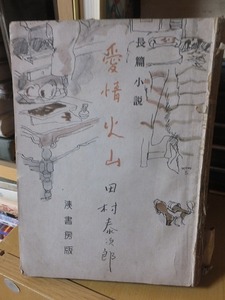 長篇小説
愛情火山
田村泰次郎
湊書房版